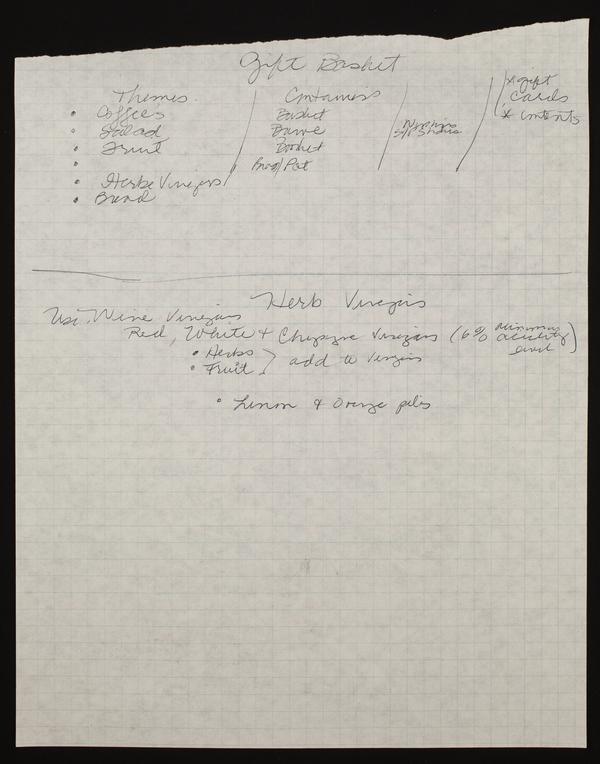 Gift Basket
Themes
• Coffees
• Salad
• Fruit
•
• Herbs Vinegars
• Bread
Containers
Basket
Basket
Bag/Pot
Napkins
* gift
Cards
* contents
Herb Vinegars
Use Wine Vinegars
Red, White & Champagne Vinegars (6% minimum acidity level)
• Herbs
• Fruit } add to Vinegars
• Lemon & Orange peles